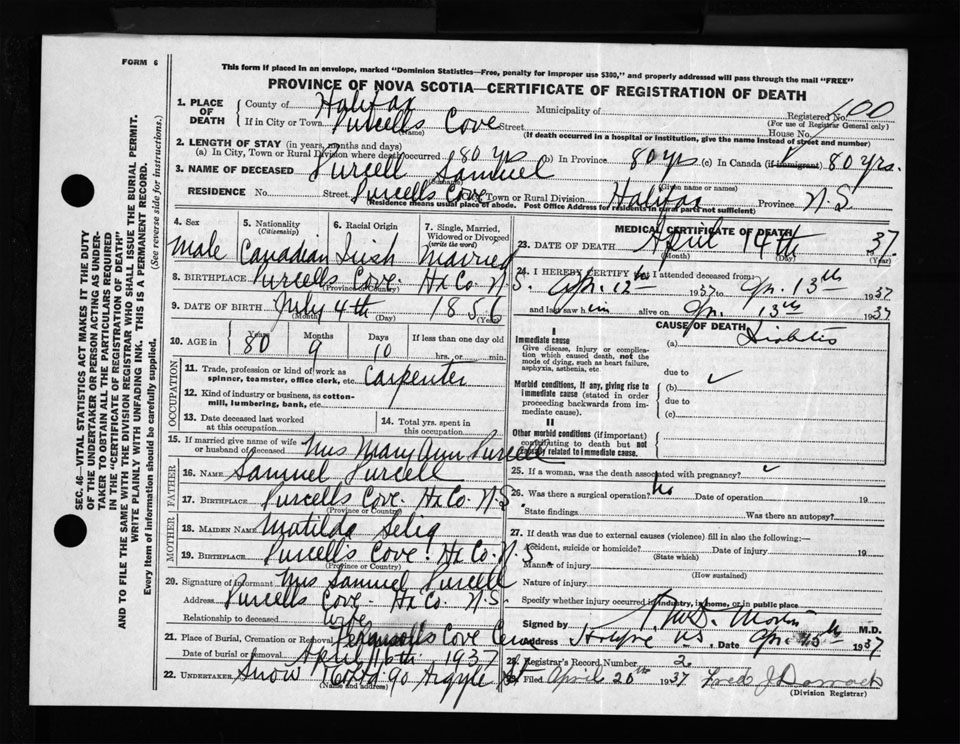 FORM 6
This form if placed in an envelope, marked "Dominion Statistics—Free, penalty for improper use $300," and properly addressed will pass through the mail "FREE"
PROVINCE OF NOVA SCOTIA—CERTIFICATE OF REGISTRATION OF DEATH
SEC. 46—VITAL STATISTICS ACT MAKES IT THE DUTY
OF THE UNDERTAKER OR PERSON ACTING AS UNDER-
TAKER TO OBTAIN ALL THE PARTICULARS REQUIRED
IN THE "CERTIFICATE OF REGISTRATION OF DEATH"
AND TO FILE THE SAME WITH THE DIVISION REGISTRAR WHO SHALL ISSUE THE BURIAL PERMIT.
WRITE PLAINLY WITH UNFADING INK. THIS IS A PERMANENT RECORD.
Every item of information should be carefully supplied. (See reverse side for instructions.)
1. PLACE OF DEATH { County of Halifax Municipality of Registered No. 100
(For use of Registrar General only)
If in City or Town Purcells Cove Street House No.
(Name) (If death occurred in a hospital or institution, give the name instead of street and number)
2. LENGTH OF STAY (in years, months and days)
(a) In City, Town or Rural Division where death occurred 80 yrs (b) In Province 80 yrs (c) In Canada (if immigrant) 80 yrs.
3. NAME OF DECEASED Purcell Samuel
(Given name or names)
RESIDENCE No. Street Purcells Cove City, Town or Rural Division Halifax Province N.S.
(Residence means usual place of abode. Post Office Address for residents in rural parts not sufficient)
4. Sex Male
5. Nationality (Citizenship) Canadian
6. Racial Origin Irish
7. Single, Married, Widowed or Divorced (write the word) Married
8. BIRTHPLACE Purcells Cove. Hx Co. N.S.
(Province or Country)
9. DATE OF BIRTH July 4th 1856
(Month) (Day) (Year)
10. AGE in Years 80 Months 9 Days 10 If less than one day old hrs. or min.
OCCUPATION
11. Trade, profession or kind of work as spinner, teamster, office clerk, etc. Carpenter
12. Kind of industry or business, as cotton-mill, lumbering, bank, etc.
13. Date deceased last worked at this occupation
14. Total yrs. spent in this occupation
15. If married give name of wife or husband of deceased Mrs Mary Ann Purcell
FATHER
16. Name Samuel Purcell
17. Birthplace Purcells Cove. Hx Co. N.S
(Province or Country)
MOTHER
18. Maiden Name Matilda Selig
19. Birthplace Purcells Cove. Hx Co. N.S
(Province or Country)
20. Signature of informant Mrs Samuel Purcell
Address Purcells Cove. Hx Co. N.S.
Relationship to deceased wife
21. Place of Burial, Cremation or Removal Cove
Date of burial or removal April 16th 1937
22. UNDERTAKER Snow 90 Argyle St
(Name and address)
MEDICAL CERTIFICATE OF DEATH
23. DATE OF DEATH April 14th 1937
(Month) (Day) (Year)
24. I HEREBY CERTIFY that I attended deceased from:
Apr. 12th 1937 to Apr. 13th 1937
and last saw him alive on Apr. 13th 1937
CAUSE OF DEATH
I
Immediate cause
Give disease, injury or complication which caused death, not the mode of dying, such as heart failure, asphyxia, asthenia, etc.
(a) Diabetes
due to
Morbid conditions, if any, giving rise to immediate cause (stated in order proceeding backwards from immediate cause).
(b)
due to
(c)
II
Other morbid conditions (if important) contributing to death but not causally related to immediate cause.
25. If a woman, was the death associated with pregnancy?
26. Was there a surgical operation? No Date of operation 19
State findings Was there an autopsy?
27. If death was due to external causes (violence) fill in also the following:—
Accident, suicide or homicide? Date of injury 19
(State which)
Manner of injury
(How sustained)
Nature of injury
Specify whether injury occurred in industry, in home, or in public place
Signed by M.D.
Address N.S. Date Apr. 1937
28. Registrar's Record Number 2
Filed April 20th 1937 Fred J Darrach
(Division Registrar)